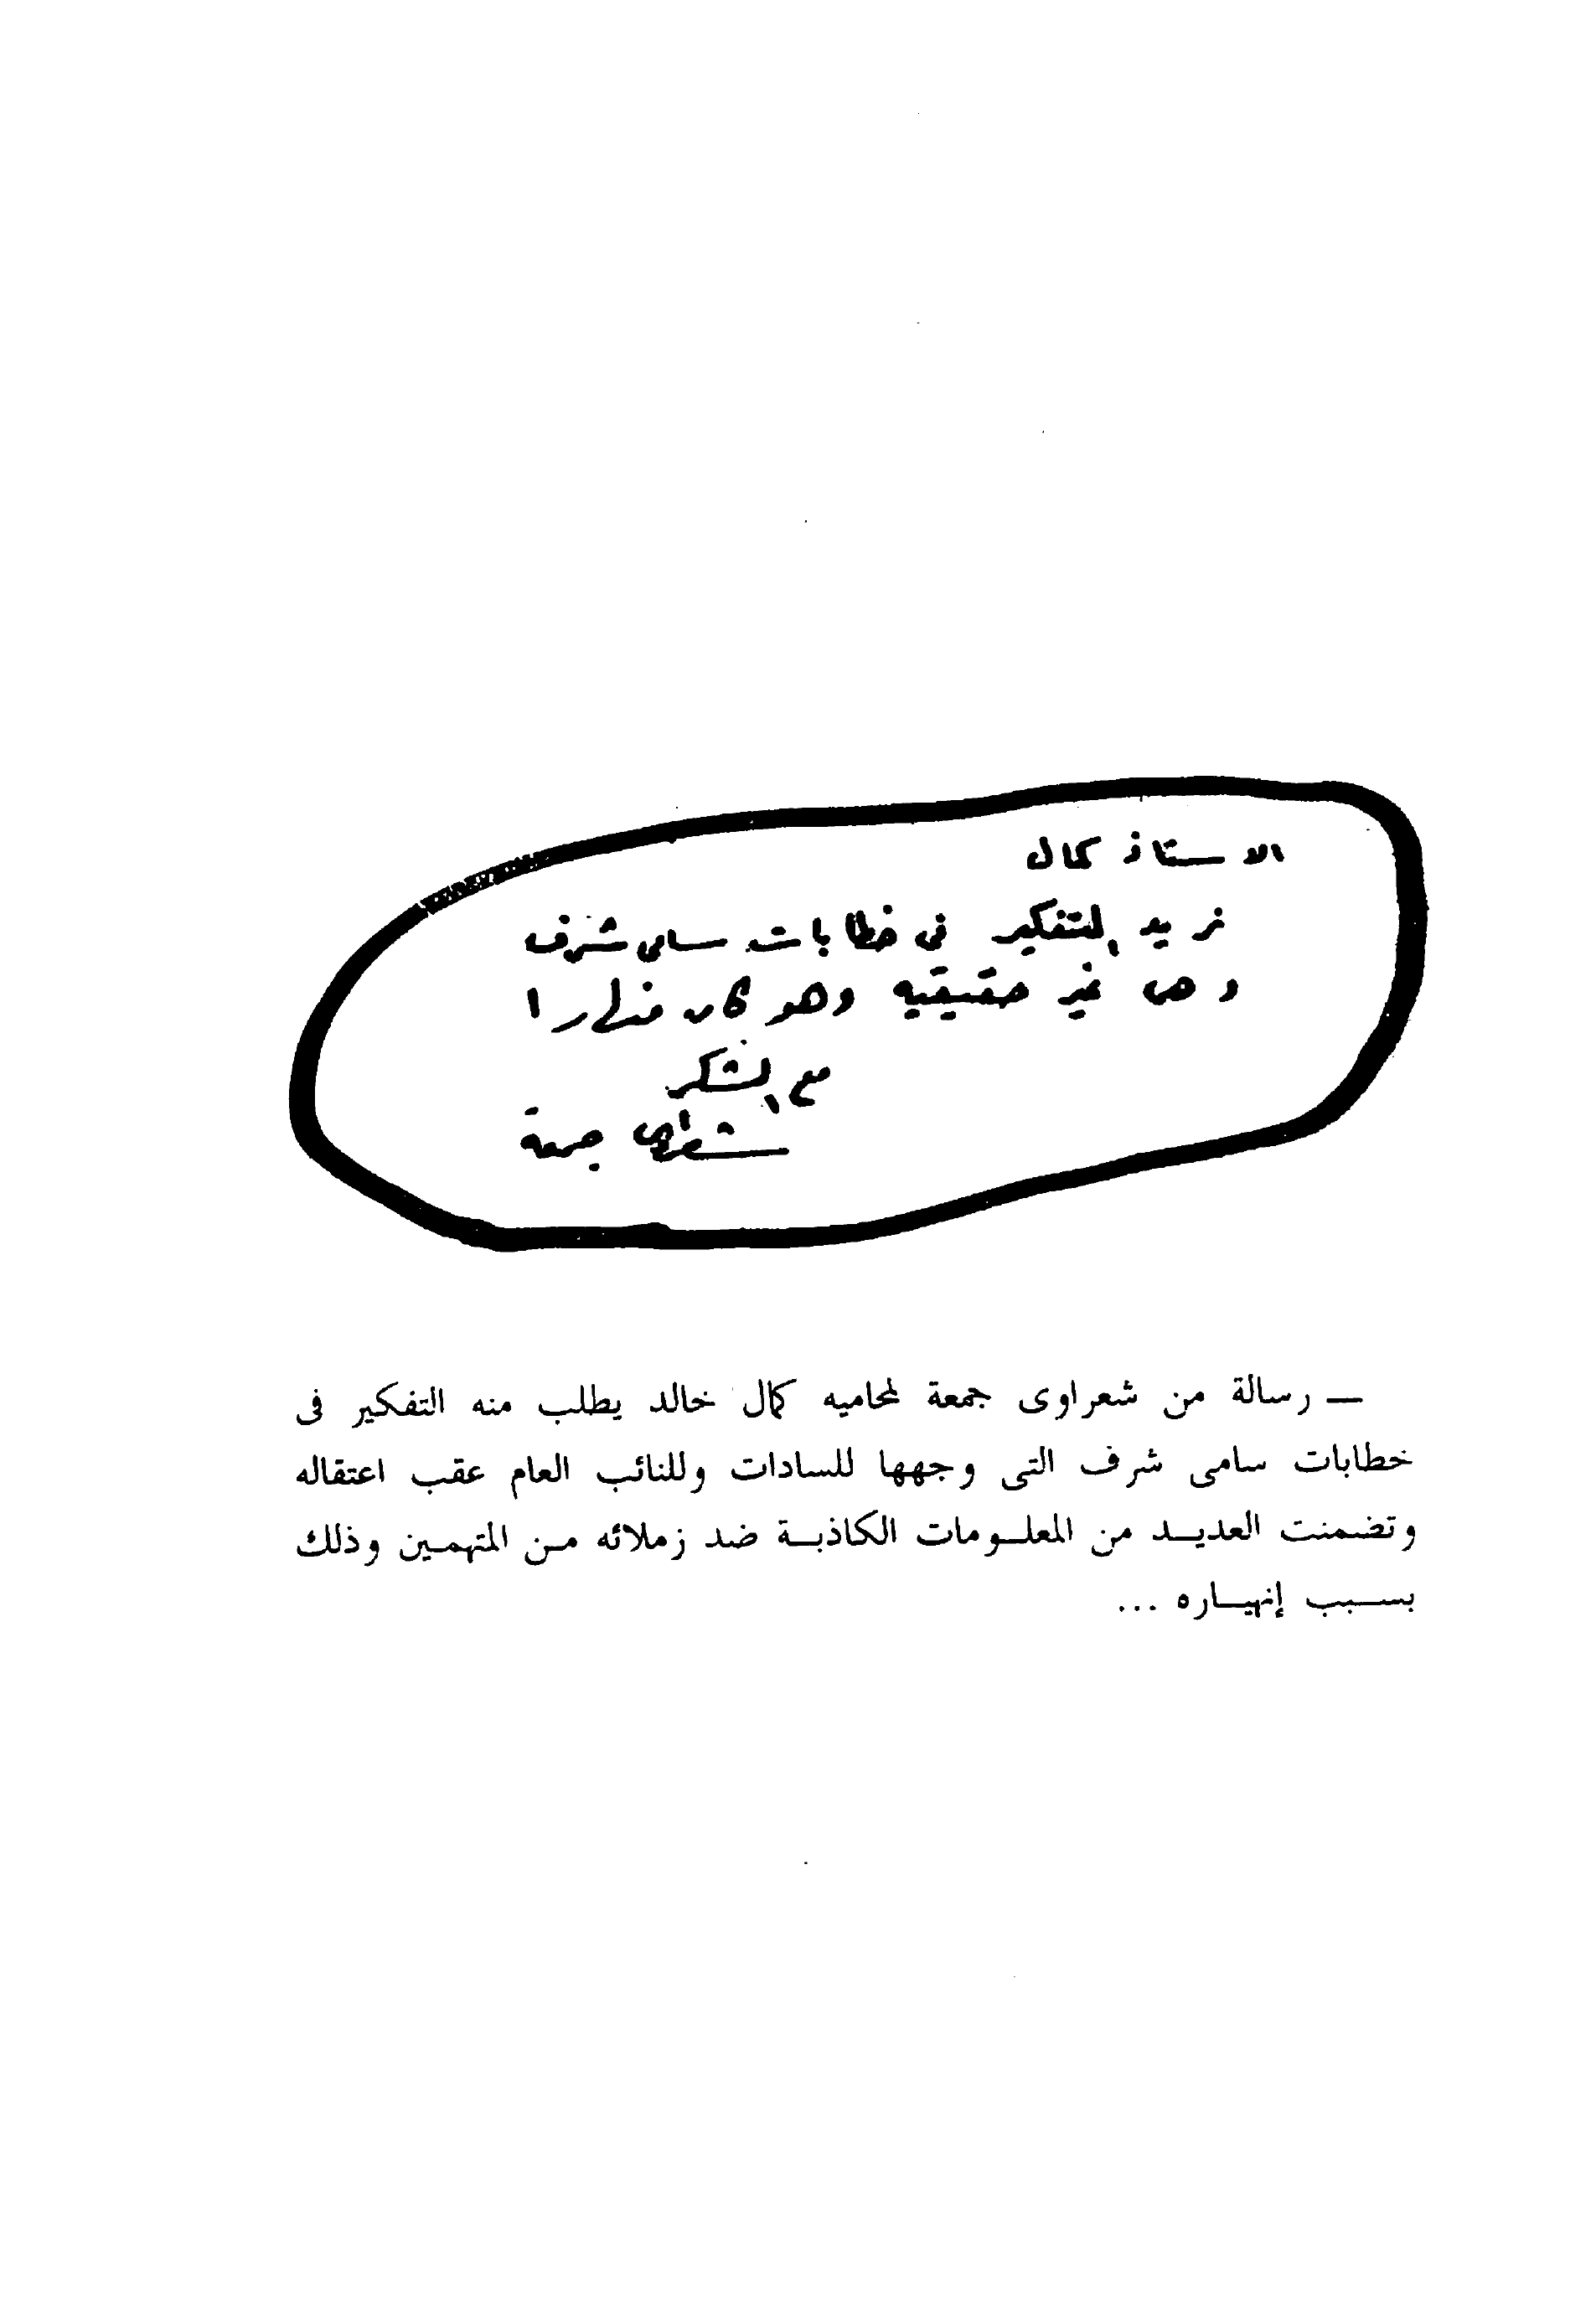 الاستاذ كمال
نريد التفكير في خطابات سامى شرف
وهى غير حقيقيه وهو كان منهارا
مع الشكر
شعراوى جمعة
— رسالة من شعراوى جمعة لمحاميه كمال خالد يطلب منه التفكير فى
خطابات سامى شرف التى وجهها للسادات وللنائب العام عقب اعتقاله
وتضمنت العديد من المعلومات الكاذبة ضد زملائه من المتهمين وذلك
بسبب إنهياره ...